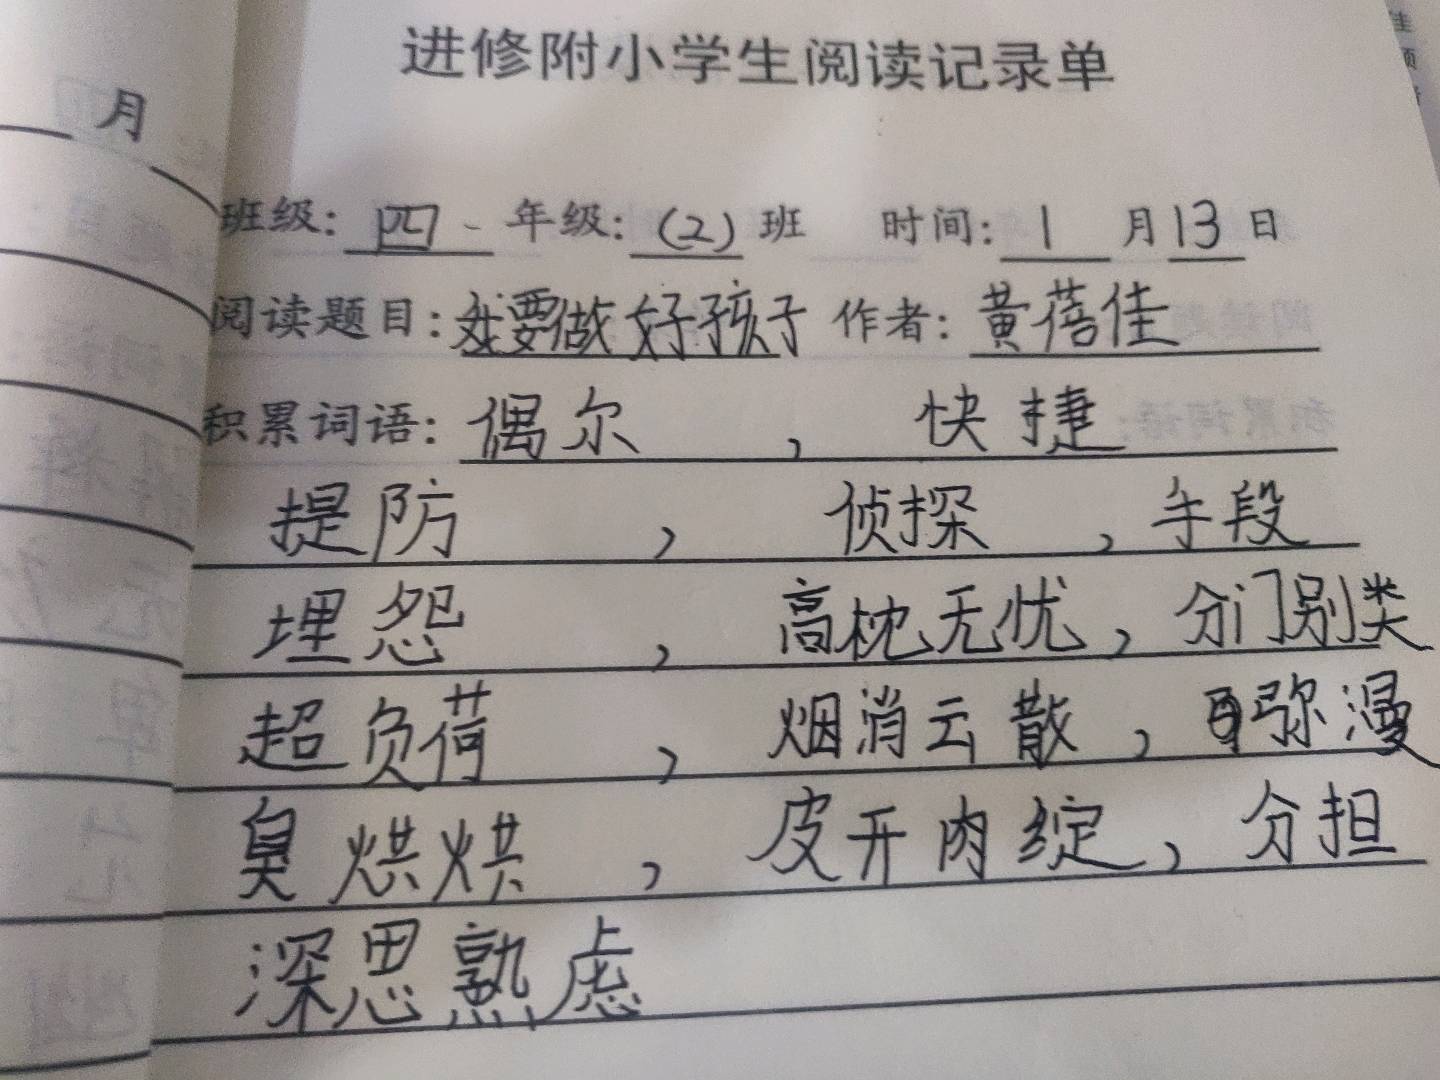 进修附小学生阅读记录单
月
班级: 四 年级: (2) 班 时间: 1 月 13 日
阅读题目: 我要做好孩子 作者: 黄蓓佳
积累词语: 偶尔 , 快捷
提防 , 侦探 , 手段
埋怨 , 高枕无忧 , 分门别类
超负荷 , 烟消云散 , 弥漫
臭烘烘 , 皮开肉绽 , 分担
深思熟虑